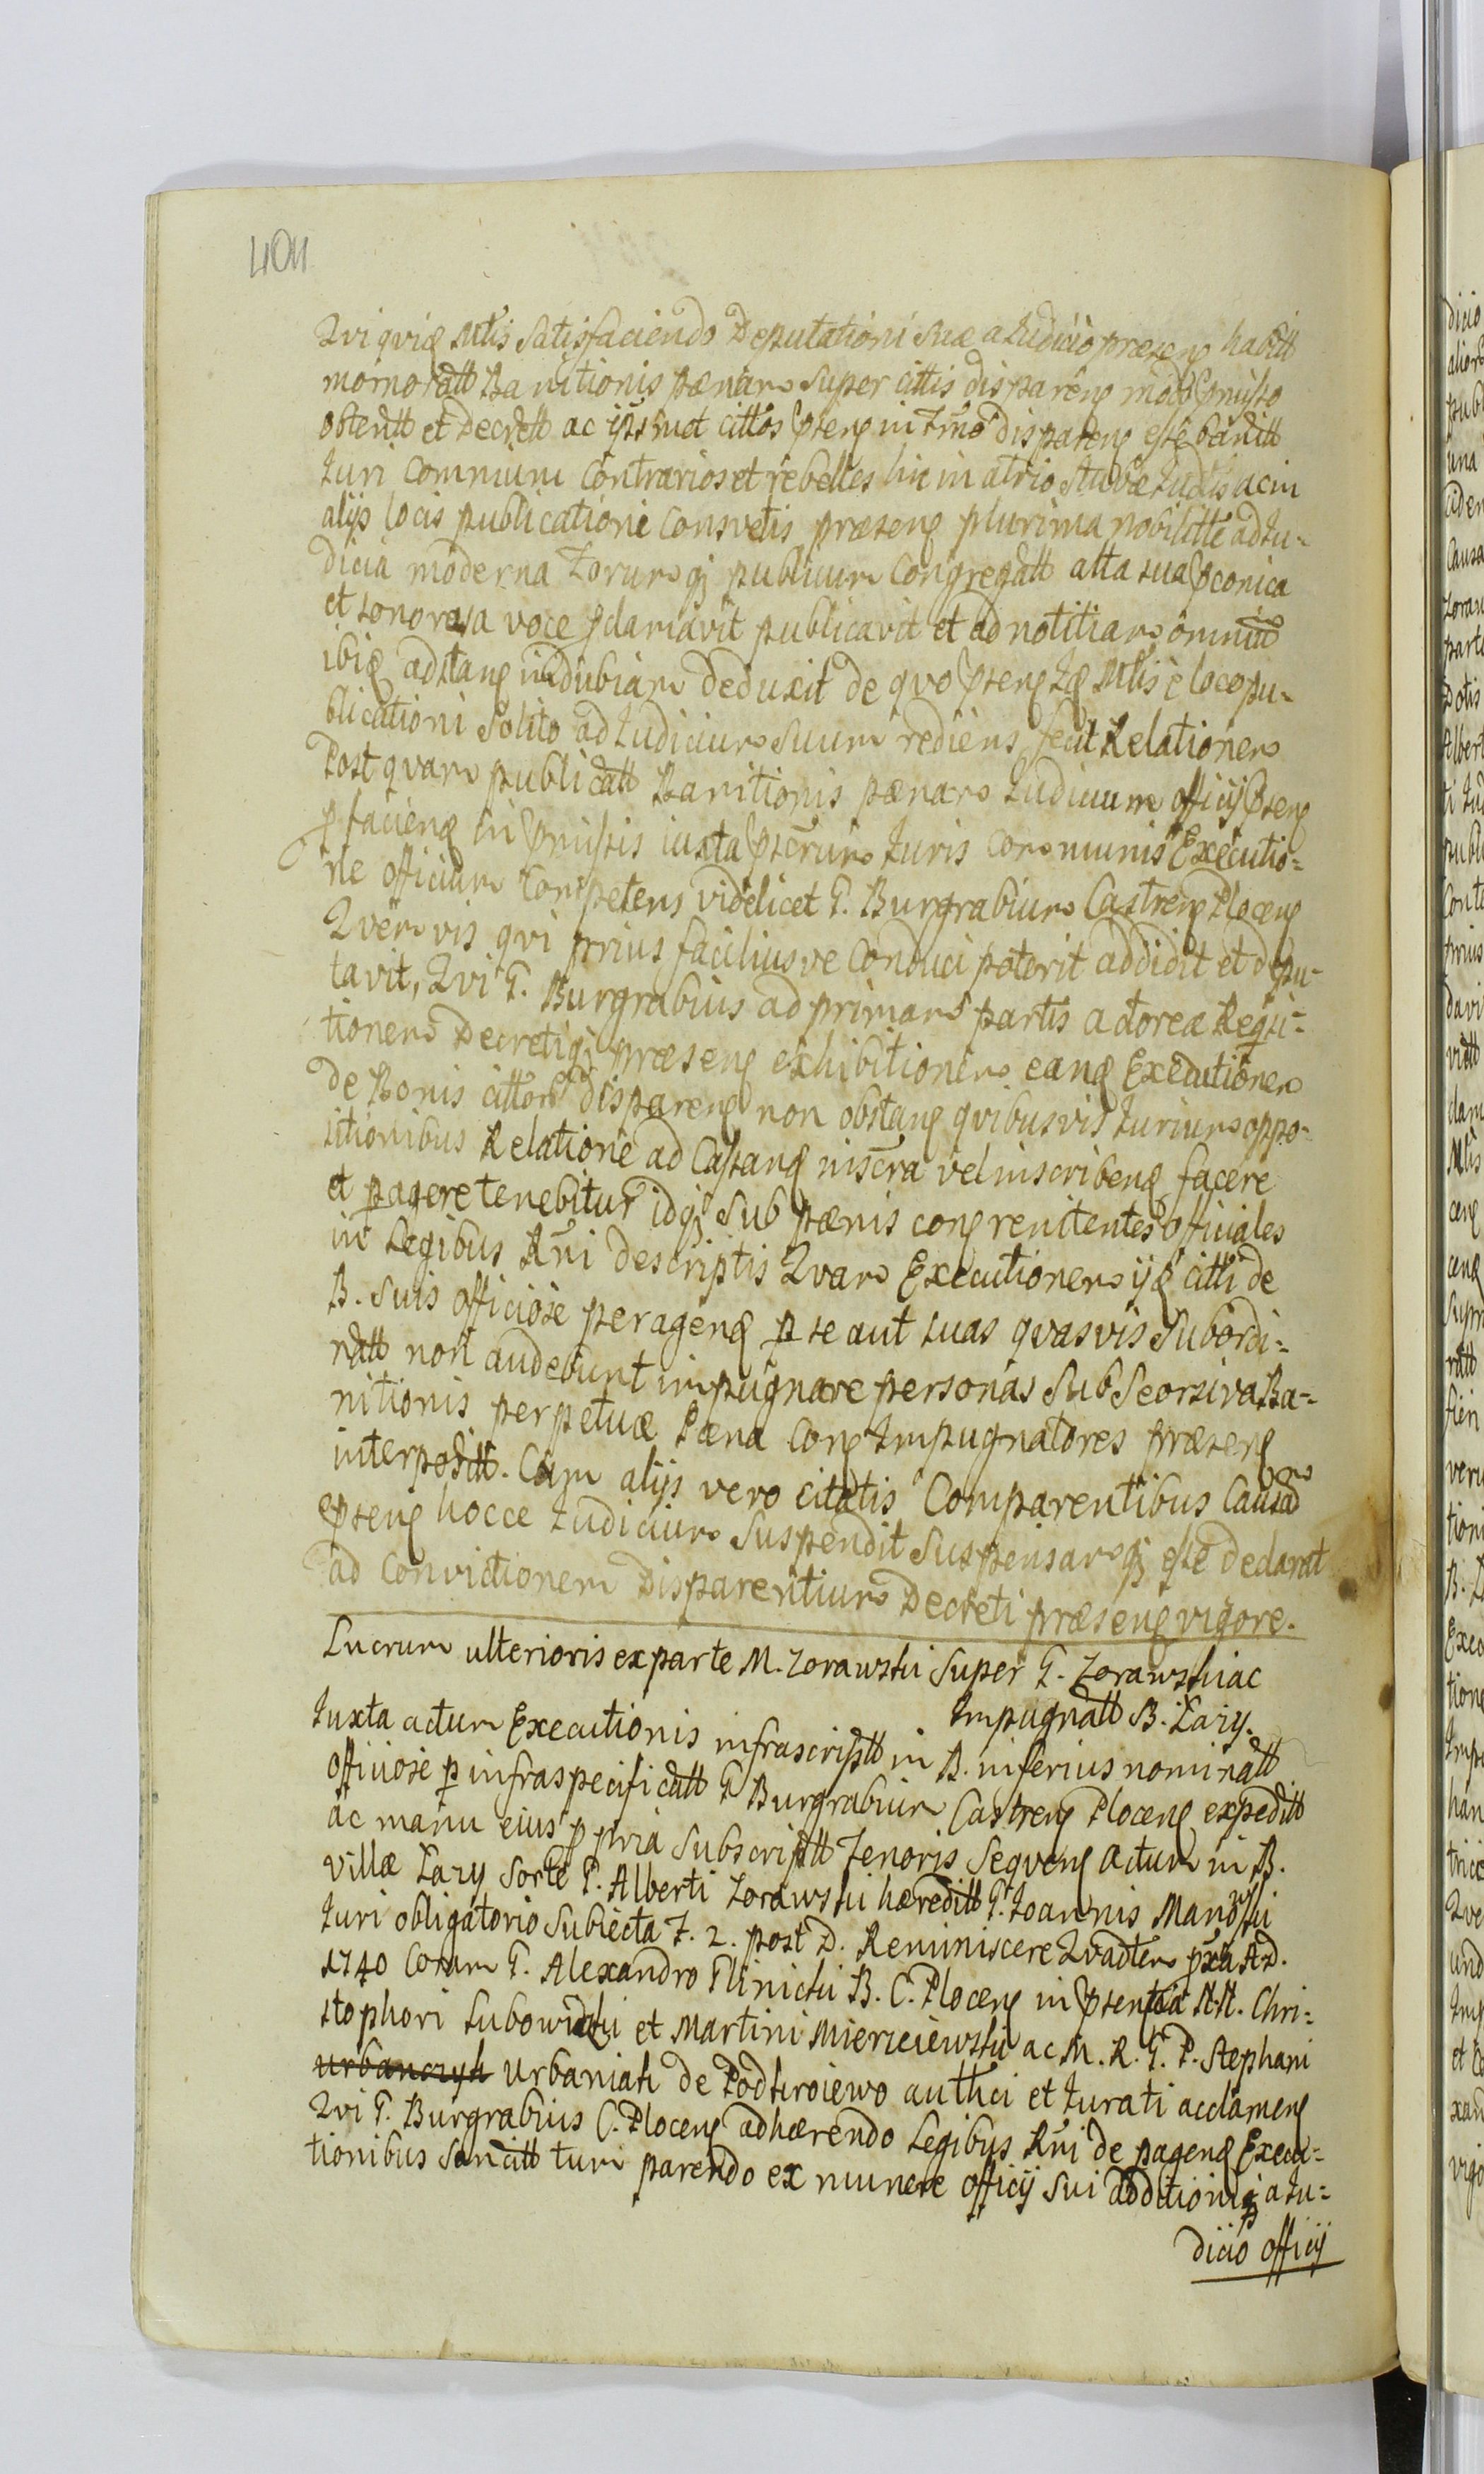 404
Qvi qvid Mtis Satisfaciendo Deputationi Suæ a Iudicio præsenẽ habitt
memoratt Banitionis pænam Super cittis disparenẽ modo pmisso
obtentt et Decrett ac ipsmet cittos psenẽ in Tmno disparenẽ esse banitt
Iuri communi Contrarios et rebelles hic in atrio Stubæ Iudis ac in
alijs locis publicationi Consvetis præsenẽ plurima Nobilitte ad Iu-
dicia moderna Forumqʒ publicum Congregatt alta sua pconica
et sonorosa voce pclamavit publicavit et ad notitiam omnium
ibid adstanẽ indubiam deduxit de qvo psenẽ Id Mtis e loco pu-
blicationi Solito ad Iudicium Suum rediens fecit Relationem
Post qvam publicatt Banitionis pænam Iudicium officij psenẽ
p faciend in pmissis iuxta pscrum Iuris communis Executio-
ne officium Competens videlicet G. Burgrabium Castrenẽ Plocenẽ
Qvemvis qvi prius faciliusve Conduci poterit addidit et depu-
tavit, Qvi G. Burgrabius ad primam partis actoreæ Reqvi-
tionem Decretiqʒ præsenẽ exhibitionem eand Executionem
de Bonis cittor disparenẽ non obstanẽ qvibusvis Iurium oppo-
sitionibus Relatione ad Castrand niscra vel inscribend facere
et pagere tenebitur idqʒ Sub pænis conẽ renitentes officiales
in Legibus Rni descriptis Qvam Executionem ijd citti de
B. Suis officiose peragend p se aut suas qvasvis Subordi-
natt non audebunt impugnare personas Sub Seorsiva Ba-
nitionis perpetuæ Pæna Conẽ Impugnatores præsenẽ
interpositt. Cum alijs vero citatis Comparentibus Causam
psenẽ hocce Iudicium Suspendit Suspensamqʒ esse declarat
ad Convictionem Disparentium Decreti præsenẽ vigore.
Lucrum ulterioris ex parte M. Zorawski Super G. Zorawski ac
Impugnatt B. Lazy.
Iuxta actum Executionis infrascriptt in B. inferius nominatt
officiose p infraspecificatt G Burgrabium Castrenẽ Plocenẽ expeditt
ac manu eius ppria Subscriptt Tenoris Seqvenẽ Actum in B.
villæ Lazy Sorte G. Alberti Zorawski hæreditt G. Ioannis Manowski
Iuri obligatorio Subiecta F. 2. post D. Reminiscere Qvadtem pxa AD.
1740 Coram G. Alexandro Glinicki B. C. Plocenẽ in psentia NN. Chri-
stophori Lubowidzki et Martini Mierzeiewski ac M. R. G. P. Stephani
Urbanczyk Urbaniak de Podkroiewo authci et Iurati acclamenẽ
Qvi G. Burgrabius C. Plocenẽ adhærendo Legibus Rni de pagend Execu-
tionibus Sancitt turi parendo ex munere officij Sui additioniqʒ a Iu-
dicio officij